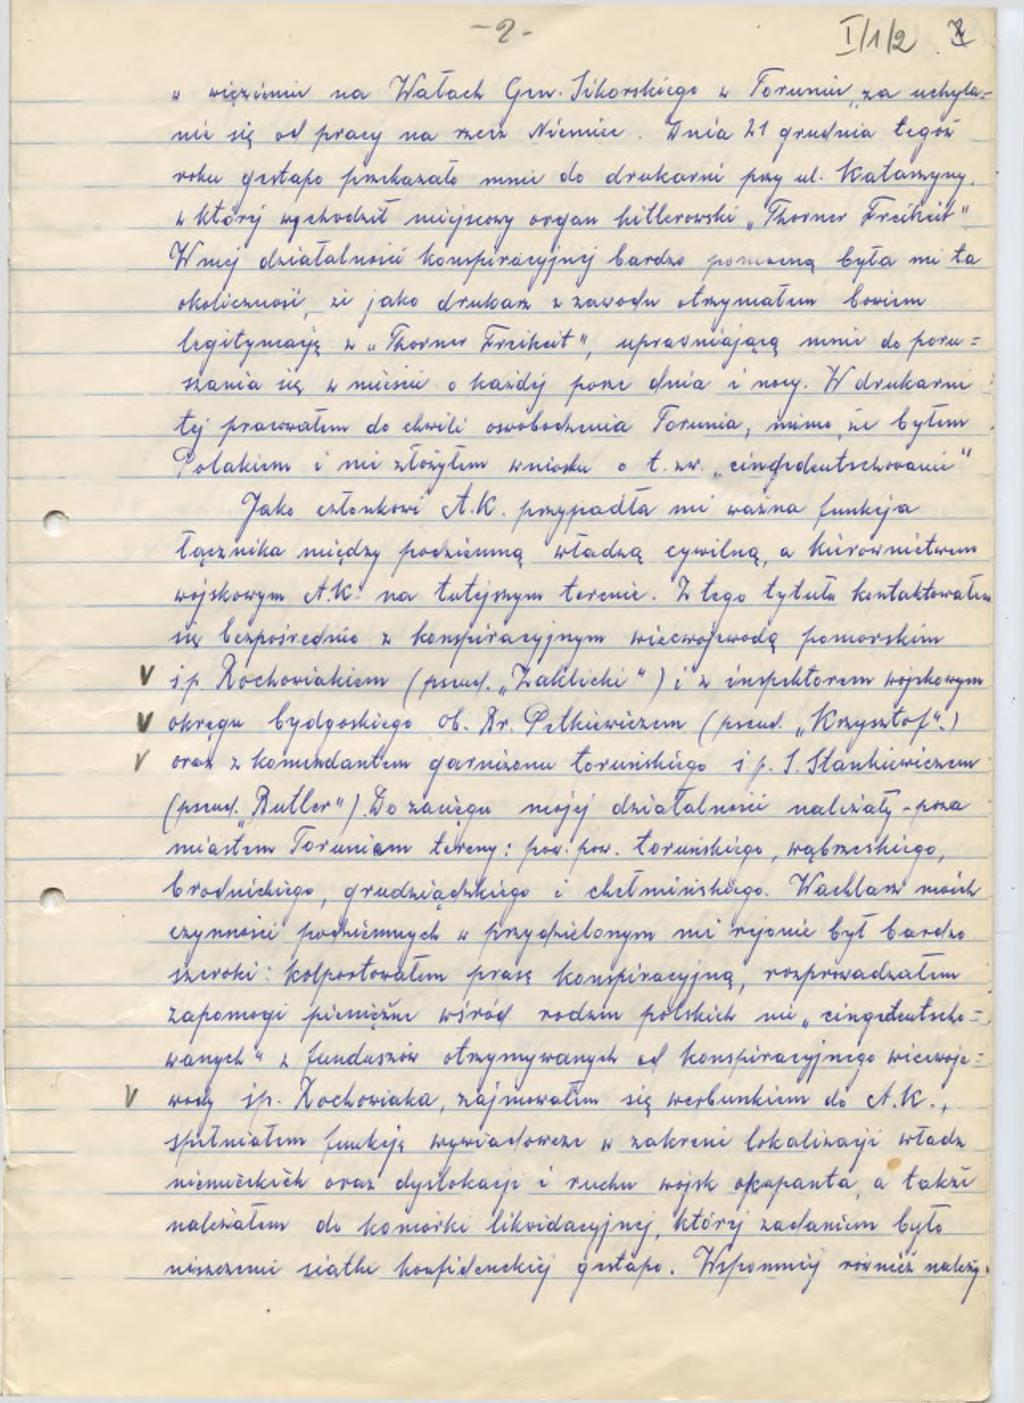 -2-
I/1/2
w więzieniu na Wałach Gen. Sikorskiego w Toruniu, za uchyla=
nie się od pracy na rzecz Niemiec. Dnia 21 grudnia tegoż
roku gestapo przekazało mnie do drukarni przy ul. Katarzyny,
w której wychodził miejscowy organ hitlerowski „Thorner Freiheit"
W mej działalności konspiracyjnej bardzo pomocną była mi ta
okoliczność, że jako drukarz z zawodu otrzymałem bowiem
legitymację z „Thorner Freiheit", uprawniającą mnie do poru=
szania się w mieście o każdej porze dnia i nocy. W drukarni
tej pracowałem do chwili oswobodzenia Torunia, mimo, że byłem
Polakiem i nie złożyłem wniosku o t. zw. „eingedeutschowanie"
Jako członkowi A.K. przypadła mi ważna funkcja
łącznika między podziemną władzą cywilną, a kierownictwem
wojskowym A.K. na tutejszym terenie. Z tego tytułu kontaktowałem
się bezpośrednio z konspiracyjnym wicewojewodą pomorskim
V ś.p. Rochowiakiem (pseud. „Zaklicki") i z inspektorem wojskowym
V okręgu bydgoskiego ob. Dr. Pętkiewiczem (pseud. „Krzysztof".)
V oraz z komendantem garnizonu toruńskiego ś.p. S. Stankiewiczem
(pseud. „Butler"). Do zasięgu mojej działalności należały - poza
miastem Toruniem tereny: pow. pow. toruńskiego, wąbrzeskiego,
brodnickiego, grudziądzkiego i chełmińskiego. Wachlarz moich
czynności podziemnych w przydzielonym mi rejonie był bardzo
szeroki: kolportowałem prasę konspiracyjną, rozprowadzałem
zapomogi pieniężne wśród rodzin polskich nie „eingedeutscho=
wanych" z funduszów otrzymywanych od konspiracyjnego wicewoje=
V wody śp. Rochowiaka, zajmowałem się werbunkiem do A.K.,
spełniałem funkcję wywiadowcze w zakresie lokalizacji władz
niemieckich oraz dyslokacji i ruchu wojsk okupanta, a także
należałem do komórki likwidacyjnej, której zadaniem było
niszczenie siatki konfidenckiej gestapo. Wspomnieć również należy,